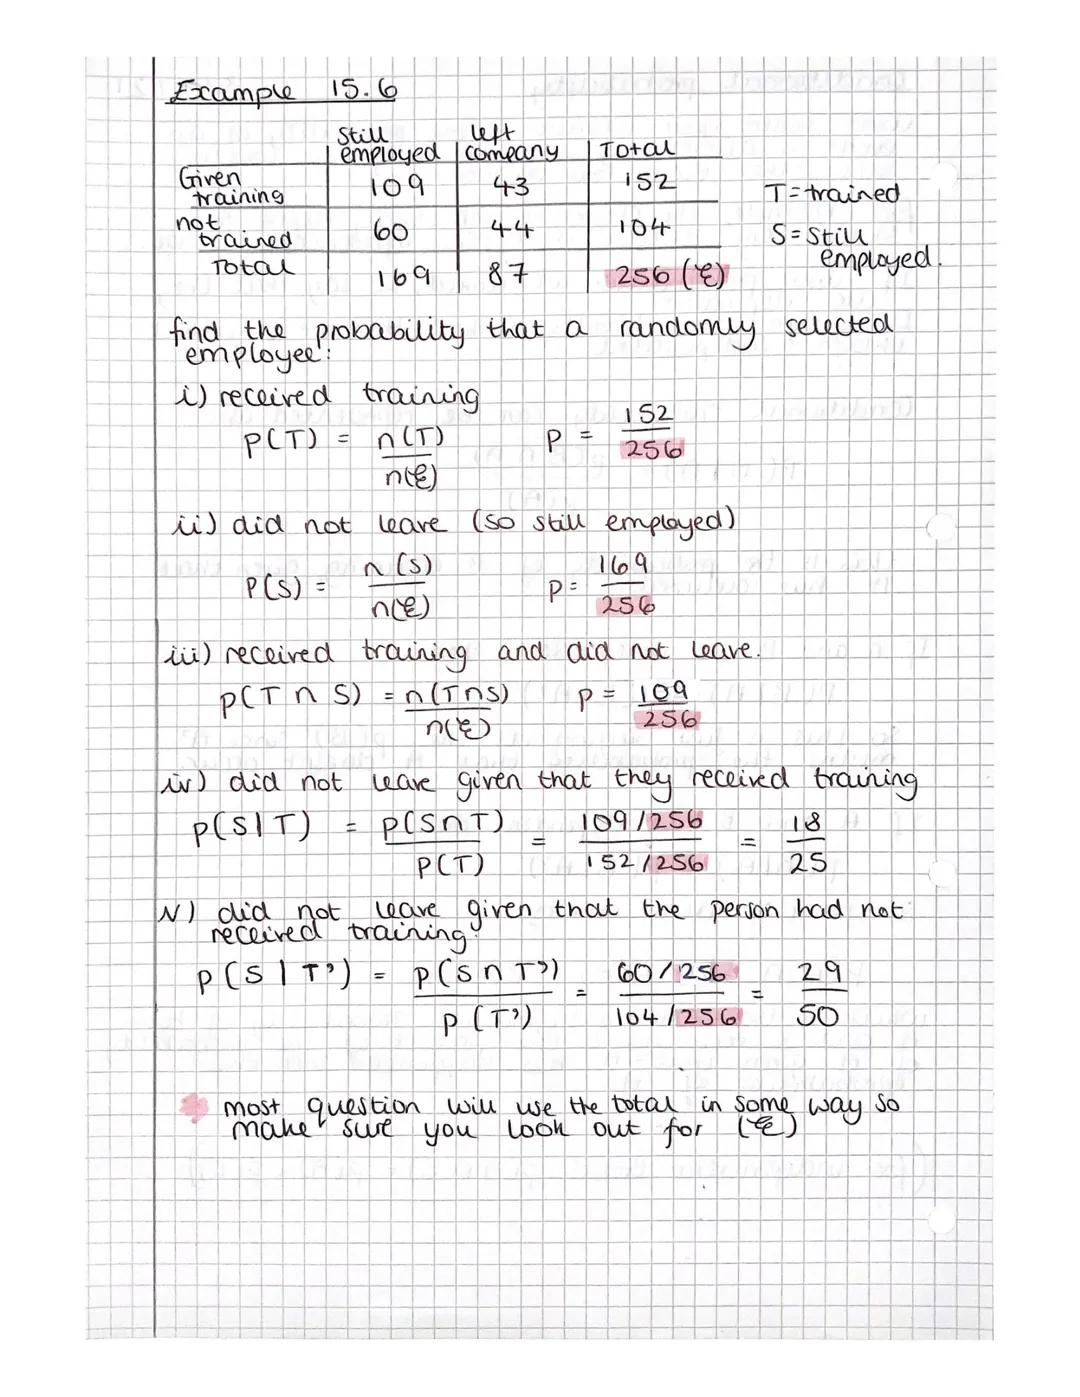 Example 15.6
Still employed left company Total
Given training 109 43 152
not trained 60 44 104
Total 169 87 256 (ℰ)
T = trained
S = Still employed.
find the probability that a randomly selected
employee:
i) received training
P(T) = n(T)/n(ℰ) P = 152/256
ii) did not leave (so still employed)
P(S) = n(S)/n(ℰ) P = 169/256
iii) received training and did not leave.
P(T ∩ S) = n(T∩S)/n(ℰ) P = 109/256
iv) did not leave given that they received training
P(S|T) = P(S∩T)/P(T) = 109/256 / 152/256 = 18/25
v) did not leave given that the person had not
received training?
P(S|T') = P(S∩T')/P(T') = 60/256 / 104/256 = 29/50
* most question will use the total in some way so
make sure you look out for (ℰ)